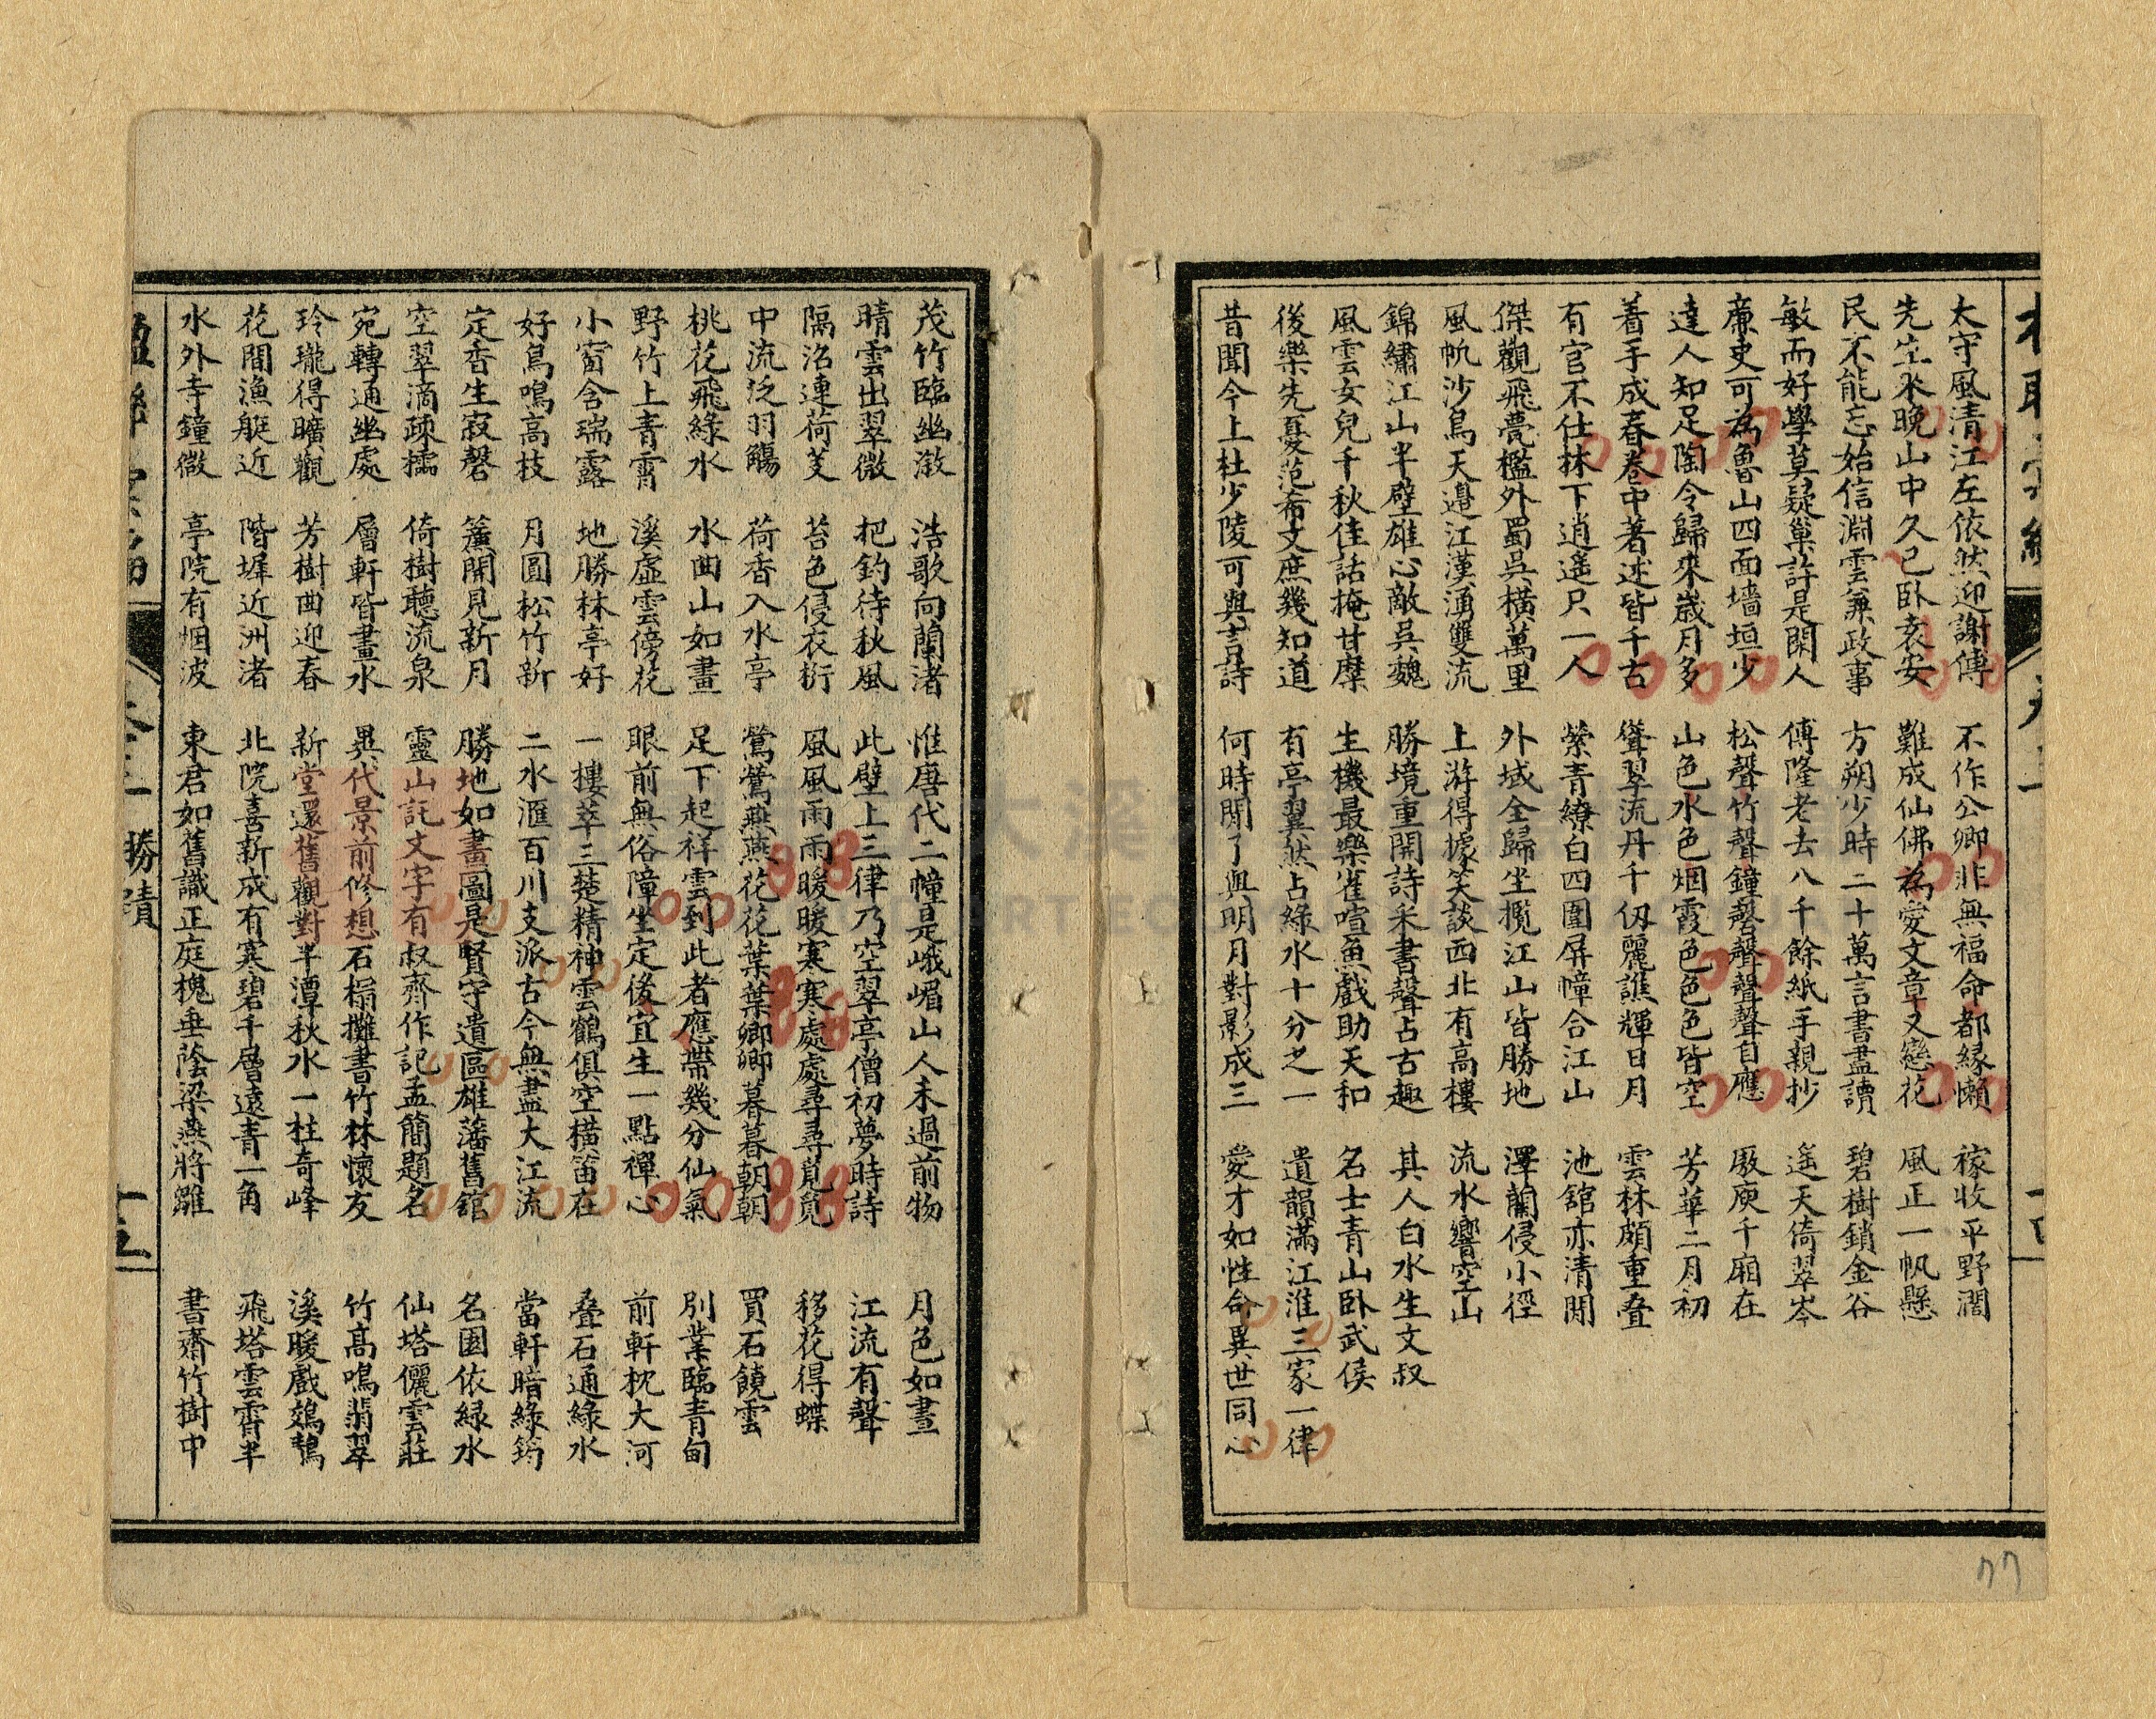 太守風清江左依然迎謝傅 不作公卿非無福命都緣懶 稼收平野濶
先生來晚山中久已卧袁安 難成仙佛為愛文章又戀花 風正一帆懸
民不能忘始信淵雲兼政事 方朔少時二十萬言書盡讀 碧樹鎖金谷
敏而好學莫疑巢許是閑人 傅隆老去八千餘紙手親抄 遙天倚翠岑
廉吏可為魯山四面墻垣少 松聲竹聲鐘磬聲聲聲自應 廒庾千廂在
達人知足陶令歸來歲月多 山色水色烟霞色色色皆空 芳華二月初
着手成春卷中著述皆千古 聳翠流丹千仭麗譙輝日月 雲林頗重叠
有官不仕林下逍遙只一人 縈青繚白四圍屏幛合江山 池舘亦清閒
傑觀飛甍檻外蜀吳橫萬里 外域全歸坐攬江山皆勝地 澤蘭侵小徑
風帆沙鳥天邊江漢湧雙流 上游得據笑談西北有高樓 流水響空山
錦繡江山半壁雄心敵吳魏 勝境重開詩禾書聲占古趣 其人白水生文叔
風雲女兒千秋佳話掩甘糜 生機最樂雀喧魚戲助天和 名士青山卧武侯
後樂先憂范希文庶幾知道 有亭翼然占綠水十分之一 遺韻滿江淮三家一律
昔聞今上杜少陵可與言詩 何時閒了與明月對影成三 愛才如性命異世同心
茂竹臨幽漵 浩歌向蘭渚 惟唐代二幢是峨嵋山人未過前物 月色如晝
晴雲出翠微 把釣待秋風 此壁上三律乃空翠亭僧初夢時詩 江流有聲
隔沼連荷芰 苔色侵衣桁 風風雨雨暖暖寒寒處處尋尋覓覓 移花得蝶
中流泛羽觴 荷香入水亭 鶯鶯燕燕花花葉葉卿卿暮暮朝朝 買石饒雲
桃花飛綠水 水曲山如畫 足下起祥雲到此者應帶幾分仙氣 別業臨青甸
野竹上青霄 溪虛雲傍花 眼前無俗障坐定後宜生一點禪心 前軒枕大河
小窗含瑞露 地勝林亭好 一樓萃三楚精神雲鶴俱空橫笛在 叠石通綠水
好鳥鳴高枝 月圓松竹新 二水滙百川支派古今無盡大江流 當軒暗綠筠
定香生寂磬 簾開見新月 勝地如畫圖是賢守遺區雄藩舊舘 名園依緑水
空翠滴疎櫺 倚樹聽流泉 靈山託文字有叔齊作記孟簡題名 仙塔儷雲莊
宛轉通幽處 層軒皆畫水 異代景前修想石榻攤書竹林懷友 竹高鳴翡翠
玲瓏得曠觀 芳樹曲迎春 新堂還舊觀對半潭秋水一柱奇峰 溪暖戲鵁鶄
花間漁艇近 階墀近洲渚 北院喜新成有寒碧千層遠青一角 飛塔雲霄半
水外寺鐘微 亭院有烟波 東君如舊識正庭槐垂蔭梁燕將雛 書齋竹樹中
勝蹟
77